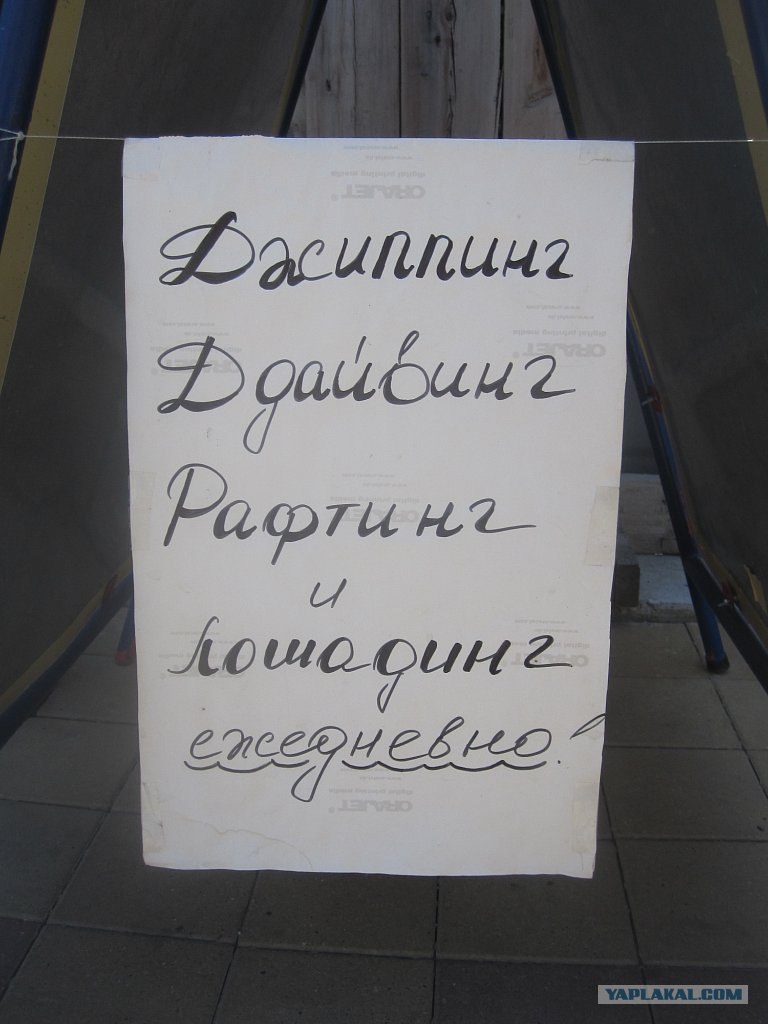 Джиппинг
Ддайвинг
Рафтинг
и
Лошадинг
ежедневно!
YAPLAKAL.COM